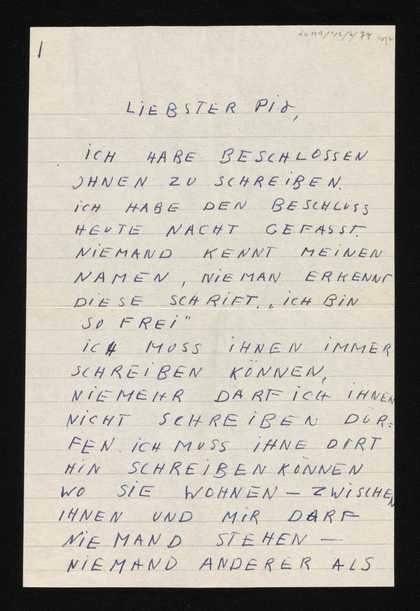 1
LIEBSTER PID,
ICH HABE BESCHLOSSEN
IHNEN ZU SCHREIBEN.
ICH HABE DEN BESCHLUSS
HEUTE NACHT GEFASST.
NIEMAND KENNT MEINEN
NAMEN, NIEMAN ERKENNT
DIESE SCHRIFT. „ICH BIN
SO FREI"
ICH MUSS IHNEN IMMER
SCHREIBEN KÖNNEN,
NIEMEHR DARF ICH IHNEN
NICHT SCHREIBEN DÜR=
FEN. ICH MUSS IHNE DORT
HIN SCHREIBEN KÖNNEN
WO SIE WOHNEN – ZWISCHEN
IHNEN UND MIR DARF
NIEMAND STEHEN –
NIEMAND ANDERER ALS